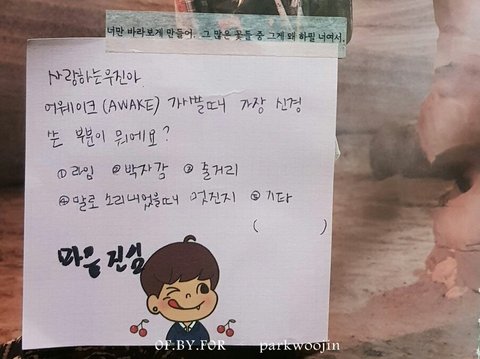 너만 바라보게 만들어. 그 많은 꽃들 중 그게 왜 하필 너여서.
사랑하는우진아
어웨이크(AWAKE) 가사쓸때 가장 신경
쓴 부분이 뭐에요?
①라임 ②박자감 ③줄거리
④말로 소리내었을때 멋진지 ⑤기타
( )
마음 진심
OF.BY.FOR parkwoojin